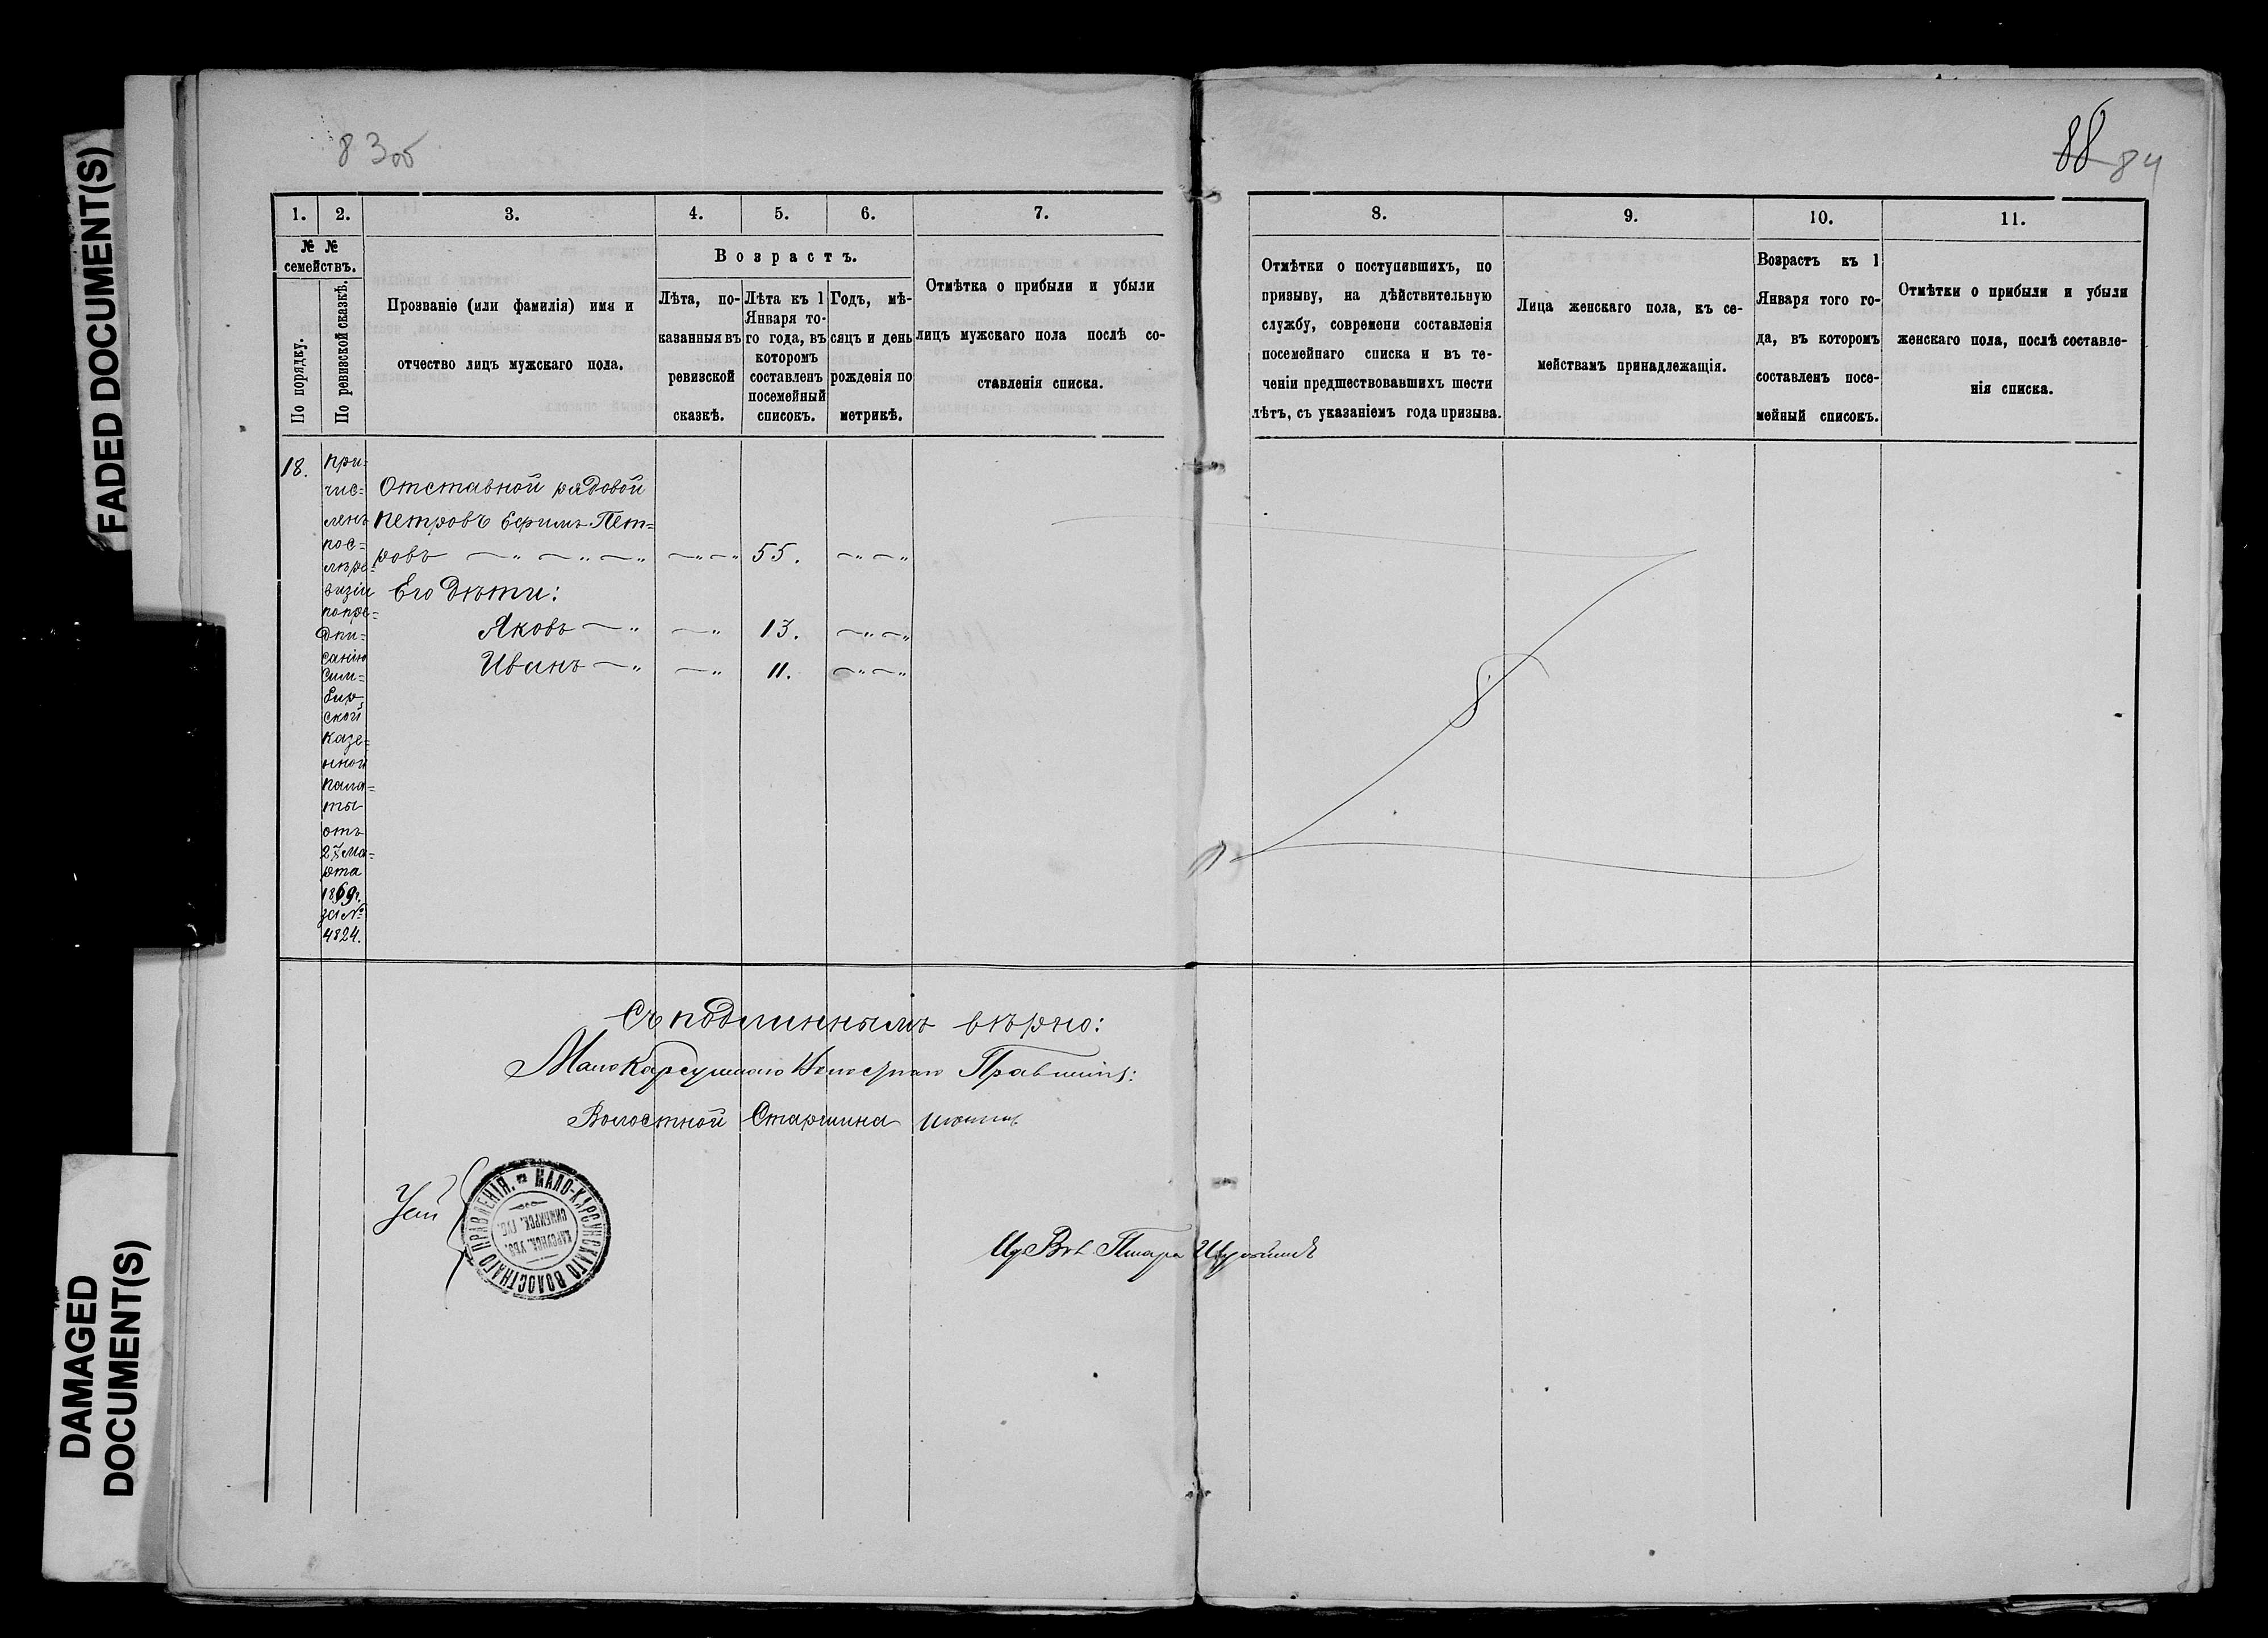 FADED DOCUMENT(S)
DAMAGED
DOCUMENT(S)
83об
88 84
1.
2.
3.
4.
5.
6.
7.
№ №
семействъ.
По порядку.
По ревизской сказкѣ.
Прозваніе (или фамилія) имя и
отчество лицъ мужскаго пола.
Возрастъ.
Лѣта, по-
казанныя въ
ревизской
сказкѣ.
Лѣта къ 1
Января то-
го года, въ
которомъ
составленъ
посемейный
списокъ.
Годъ, мѣ-
сяцъ и день
рожденія по
метрикѣ.
Отмѣтка о прибыли и убыли
лицъ мужскаго пола послѣ со-
ставленія списка.
8.
9.
10.
11.
Отмѣтки о поступившихъ, по
призыву, на дѣйствительную
службу, современи составленія
посемейнаго списка и въ те-
ченіи предшествовавшихъ шести
лѣтъ, съ указаніемъ года призыва.
Лица женскаго пола, къ се-
мействамъ принадлежащія.
Возрастъ къ 1
Января того го-
да, въ которомъ
составленъ посе-
мейный списокъ.
Отмѣтки о прибыли и убыли
женскаго пола, послѣ составле-
нія списка.
18.
При-
чис-
ленъ
пос-
лѣ ре-
визіи
по пре-
дпи-
санію
Сим-
бир-
ской
казе-
нной
пала-
ты
отъ
27 ма-
рта
1869 г.
за №
4824.
Отставной рядовой
Петровъ Ефимъ Пет-
ровъ 55.
Его дѣти:
Яковъ 13.
Иванъ 11.
Съ подлиннымъ вѣрно:
Мало Карсунскаго Волостнаго Правленія:
Волостной Старшина
МАЛО-КАРСУНСКАГО ВОЛОСТНАГО ПРАВЛЕНІЯ.
КАРСУНСК. УѢЗ.
СИМБИРСК. ГУБ.
Писаря